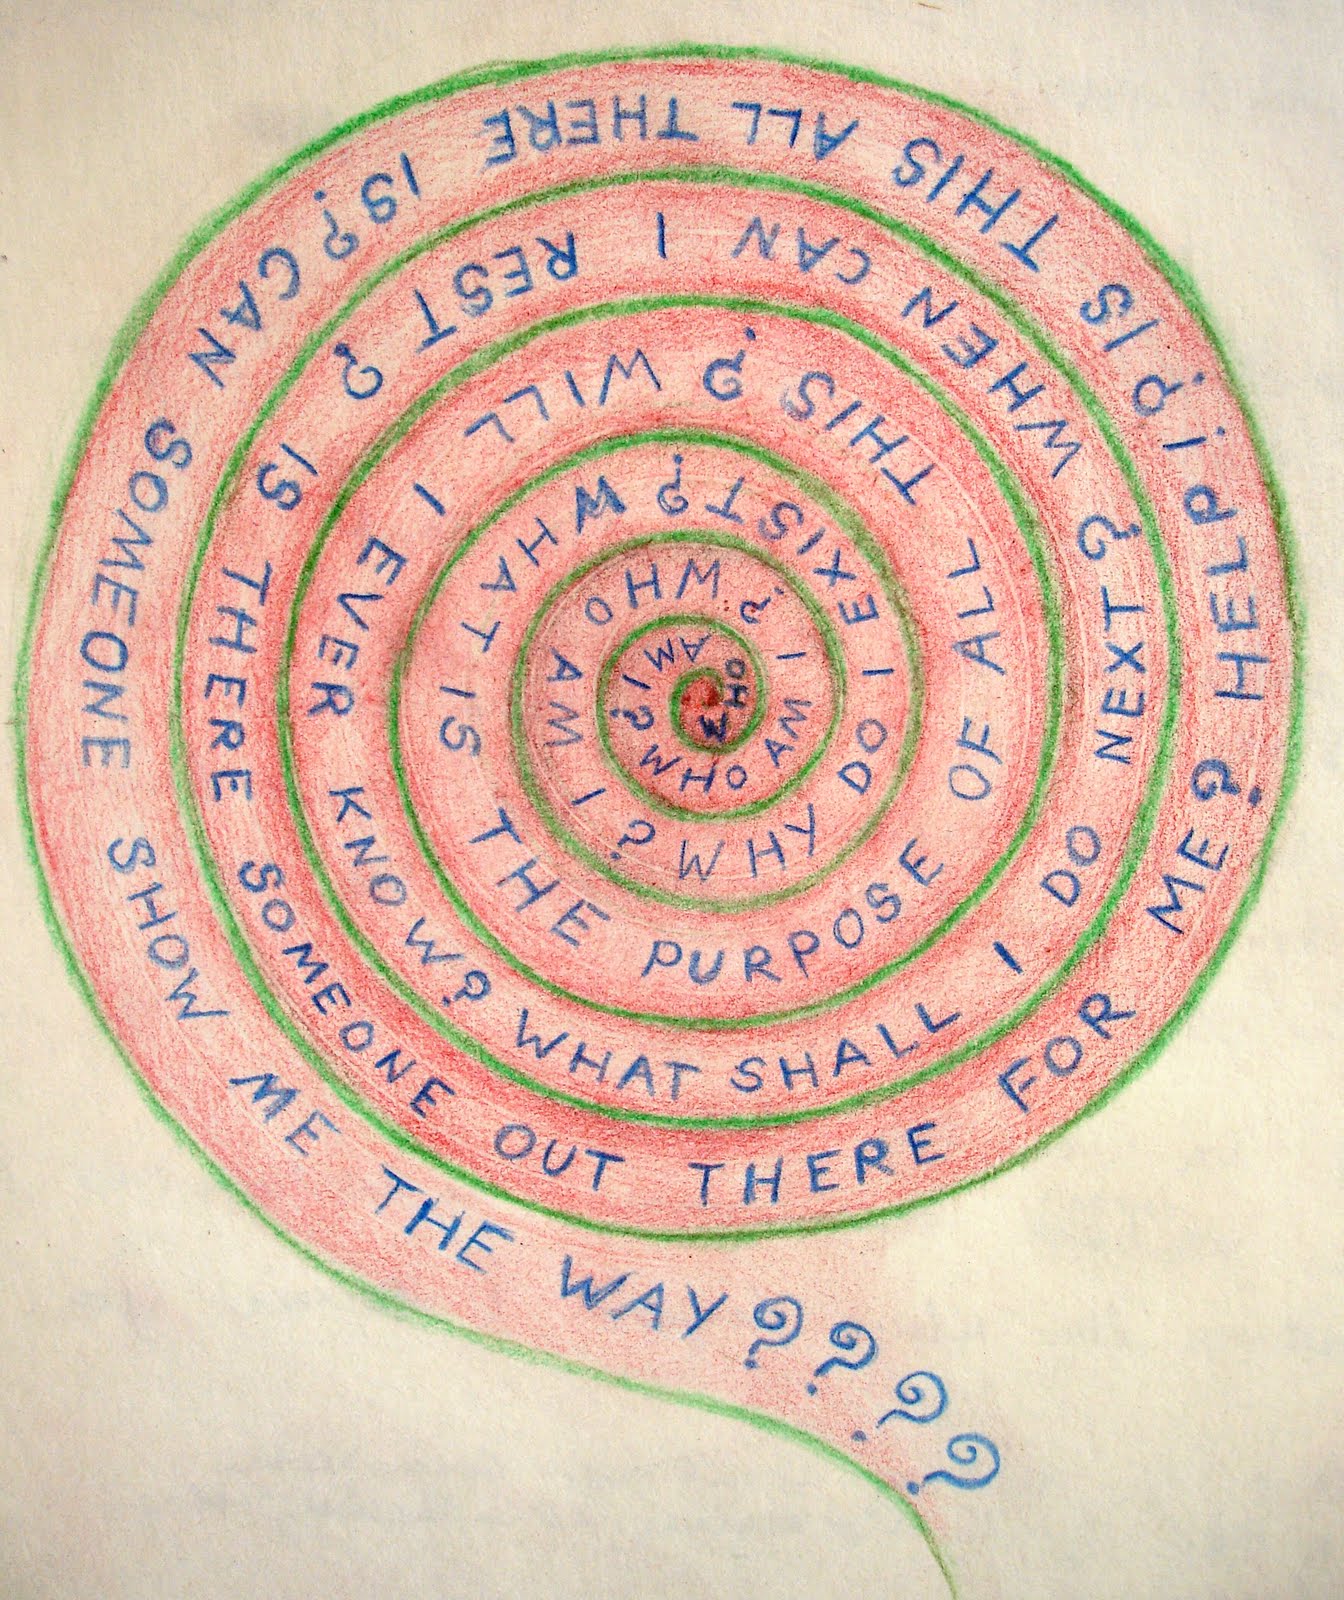 WHO AM I? WHO AM I? WHO AM I? WHY DO I EXIST? WHAT IS THE PURPOSE OF ALL THIS? WILL I EVER KNOW? WHAT SHALL I DO NEXT? WHEN CAN I REST? IS THERE SOMEONE OUT THERE FOR ME? HELP!? IS THIS ALL THERE IS? CAN SOMEONE SHOW ME THE WAY????